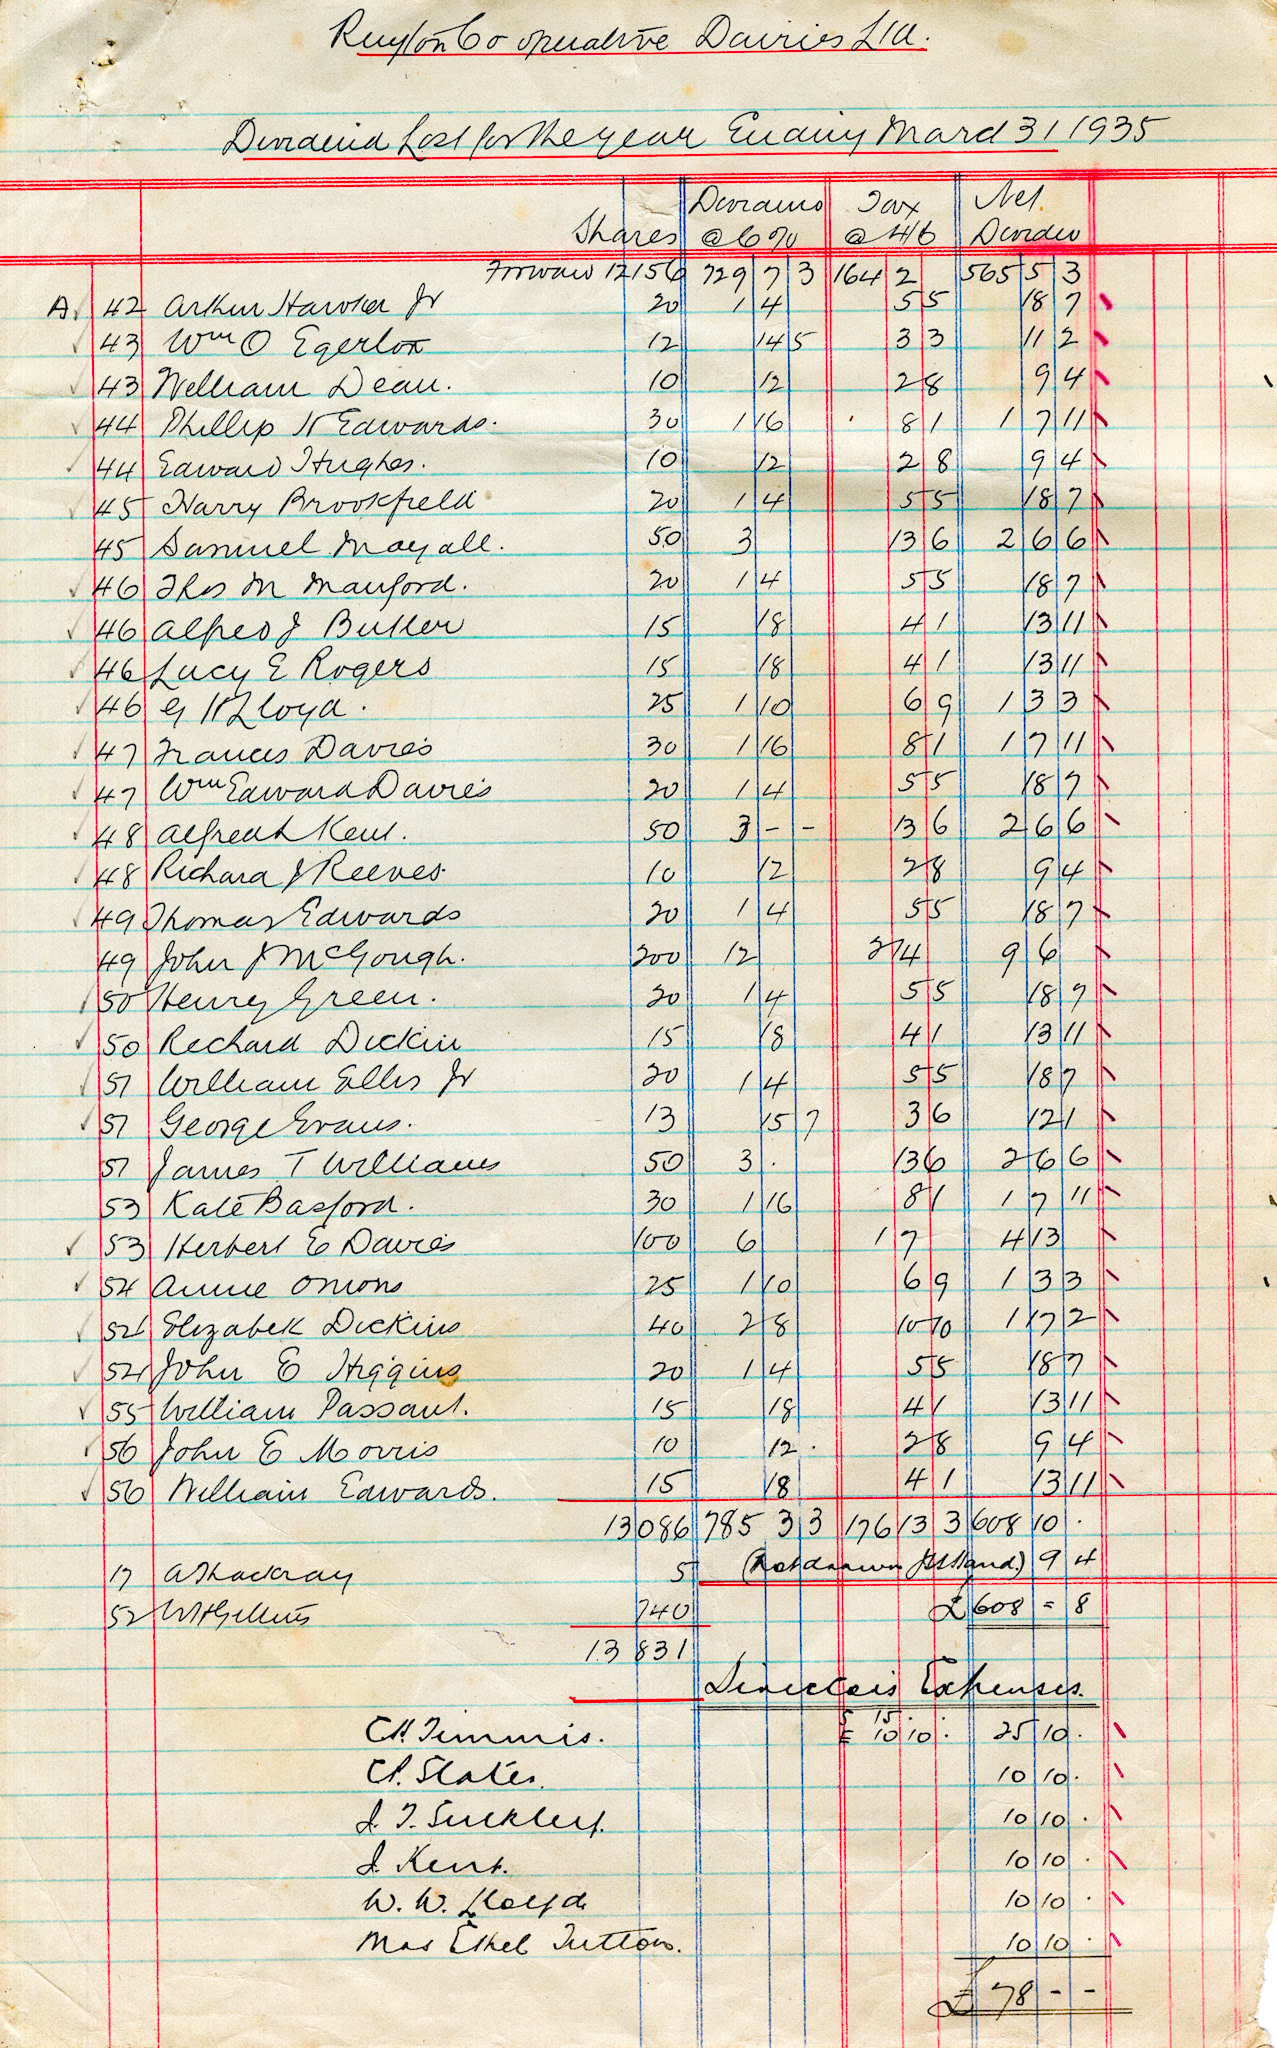 Ruyton Co operative Dairies Ltd.
Dividend List for the year Ending March 31 1935
Shares Dividend @ 6% Tax @ 4/6 Net Dividen
Forward 12156 729 7 3 164 2 565 5 3
A 42 Arthur Hawker Jr 20 1 4 5 5 18 7
43 Wm O Egerton 12 14 5 3 3 11 2
43 William Dean. 10 12 2 8 9 4
44 Phillip H Edwards. 30 1 16 8 1 1 7 11
44 Edward Hughes. 10 12 2 8 9 4
45 Harry Brookfield 20 1 4 5 5 18 7
45 Samuel Mayall. 50 3 13 6 2 6 6
46 Thos M Manford. 20 1 4 5 5 18 7
46 Alfred J Butler 15 18 4 1 13 11
46 Lucy E Rogers 15 18 4 1 13 11
46 G H Lloyd. 25 1 10 6 9 1 3 3
47 Frances Davies 30 1 16 8 1 1 7 11
47 Wm Edward Davies 20 1 4 5 5 18 7
48 Alfred L Kent. 50 3 - - 13 6 2 6 6
48 Richard J Reeves 10 12 2 8 9 4
49 Thomas Edwards 20 1 4 5 5 18 7
49 John J McGough. 200 12 2 14 9 6
50 Henry Green. 20 1 4 5 5 18 7
50 Richard Dickin 15 18 4 1 13 11
51 William Ellis Jr 20 1 4 5 5 18 7
51 George Evans. 13 15 7 3 6 12 1
51 James T Williams 50 3 . 13 6 2 6 6
53 Kate Basford. 30 1 16 8 1 1 7 11
53 Herbert E Davies 100 6 1 7 4 13
54 Annie Onions 25 1 10 6 9 1 3 3
54 Elizabeth Dickins 40 2 8 10 10 1 17 2
54 John E Higgins 20 1 4 5 5 18 7
55 William Passant. 15 18 4 1 13 11
56 John E Morris 10 12 . 2 8 9 4
56 William Edwards. 15 18 4 1 13 11
13086 785 3 3 176 13 3 608 10 .
17 A Thackray 5 (Not drawn) 9 4
52 W H 740 £ 608 = 8
13 831
Directors Expenses.
C H. Timmis. 5 15 . £ 10 10 . 25 10 .
C P. Slater. 10 10 .
J. T. Suckley. 10 10 .
J. Kent. 10 10 .
W. W. Lloyd 10 10 .
Mrs Ethel Tutton. 10 10 .
£ 78 - -